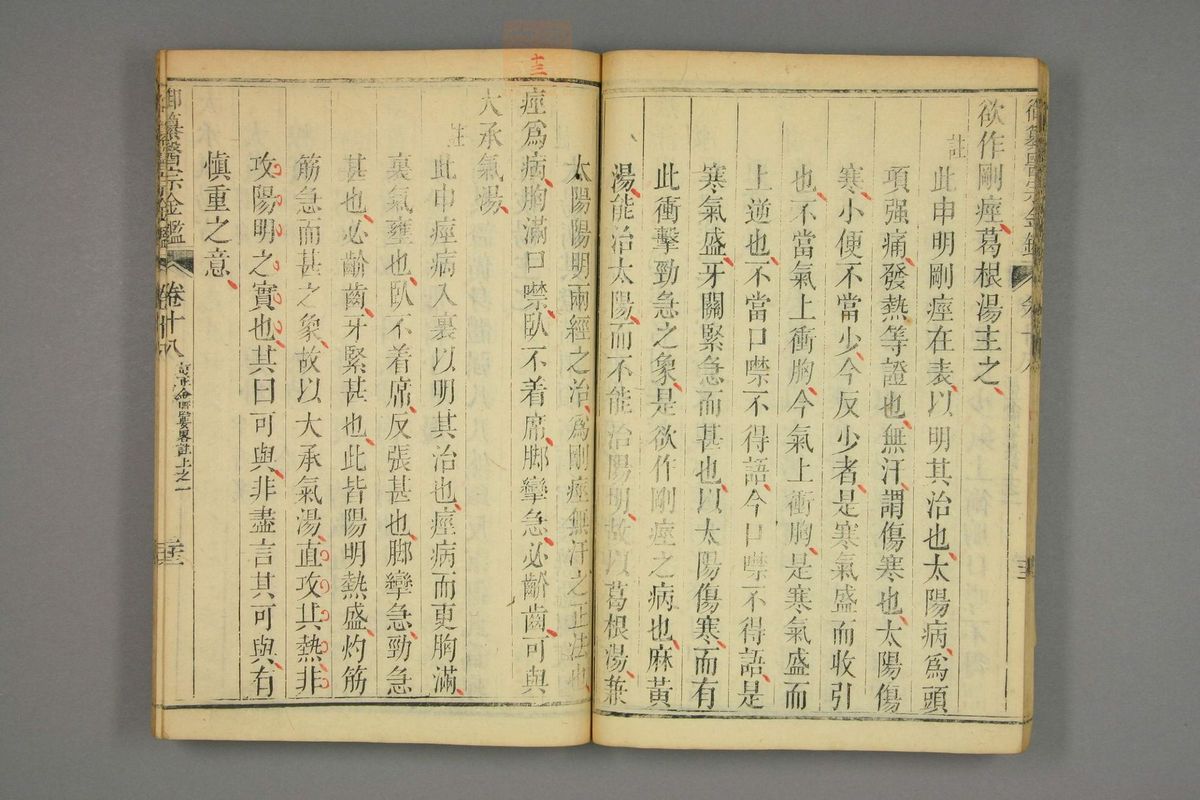 御纂醫宗金鑑
欲作剛痙葛根湯主之
註
此申明剛痙在表以明其治也太陽病爲頭
項强痛發熱等證也無汗謂傷寒也太陽傷
寒小便不當少今反少者是寒氣盛而收引
也不當氣上衝胸今氣上衝胸是寒氣盛而
上逆也不當口噤不得語今口噤不得語是
寒氣盛牙關緊急而甚也以太陽傷寒而有
此衝擊勁急之象是欲作剛痙之病也麻黃
湯能治太陽而不能治陽明故以葛根湯兼
太陽陽明兩經之治爲剛痙無汗之正法也
痙爲病胸滿口噤臥不着席脚攣急必齘齒可與
大承氣湯
註
此申痙病入裏以明其治也痙病而更胸滿
裏氣壅也臥不着席反張甚也脚攣急勁急
甚也必齘齒牙緊甚也此皆陽明熱盛灼筋
筋急而甚之象故以大承氣湯直攻其熱非
攻陽明之實也其曰可與非盡言其可與有
慎重之意
御纂醫宗金鑑
卷十八
訂正金匱要畧註上之一
十三